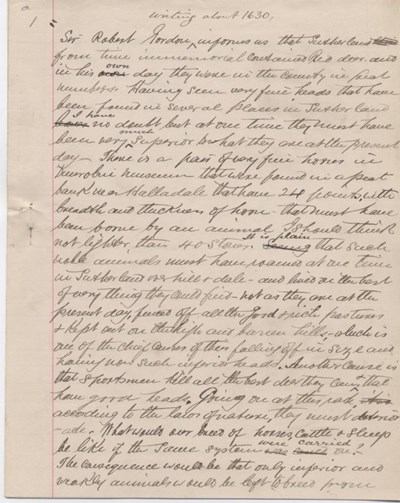 a
1
writing about 1630,
Sir Robert Gordon, informs us that Sutherland
from time immemorial contained Red deer and
in his own day they were in the county in great
numbers Having seen very fine heads that have
been found in several places in Sutherland
I have no doubt but at one time they must have
been very much superior to what they are at the present
day – There is a pair of very fine horns in
Dunrobin Museum that were found in a peat
bank near Halladale that have 24 points, with
breadth and thickness of horn that must have
been borne by an animal I should think
not lighter than 40 stone. It is plain that such
noble animals must have roamed at one time
in Sutherland over hill & dale – and lived on the best
of every thing they could find – not as they are at the
present day, fenced off all the good & rich pastures
& kept out on the high and barren hills, – which is
one of the chief causes of their falling off in size and
having now such inferior heads. Another cause is
that Sportsmen kill all the best deer they can, that
have good heads. Going on at this rate
according to the laws of nature, they must deterior
-ade. What would our breed of horses, Cattle & Sheep
be like if the same system were carried on –
The consequence would be that only inferior and
weakly animals would be left to breed from